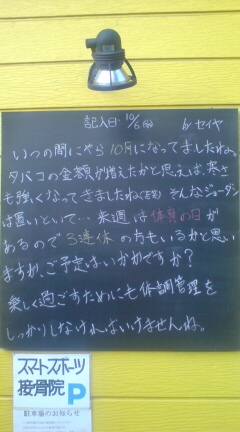 記入日・10/6(水) by セイヤ
いつの間にやら10月になってましたね。
タバコの金額が増えたかと思えば、寒さ
も強くなってきましたね(苦笑) そんなジョーダン
は置いといて… 来週は体育の日が
あるので3連休の方もいるかと思い
ますが、ご予定はいかがですか？
楽しく過ごすためにも体調管理を
しっかりしなければいけませんね。
スマートスポーツ
接骨院 P
駐車場のお知らせ